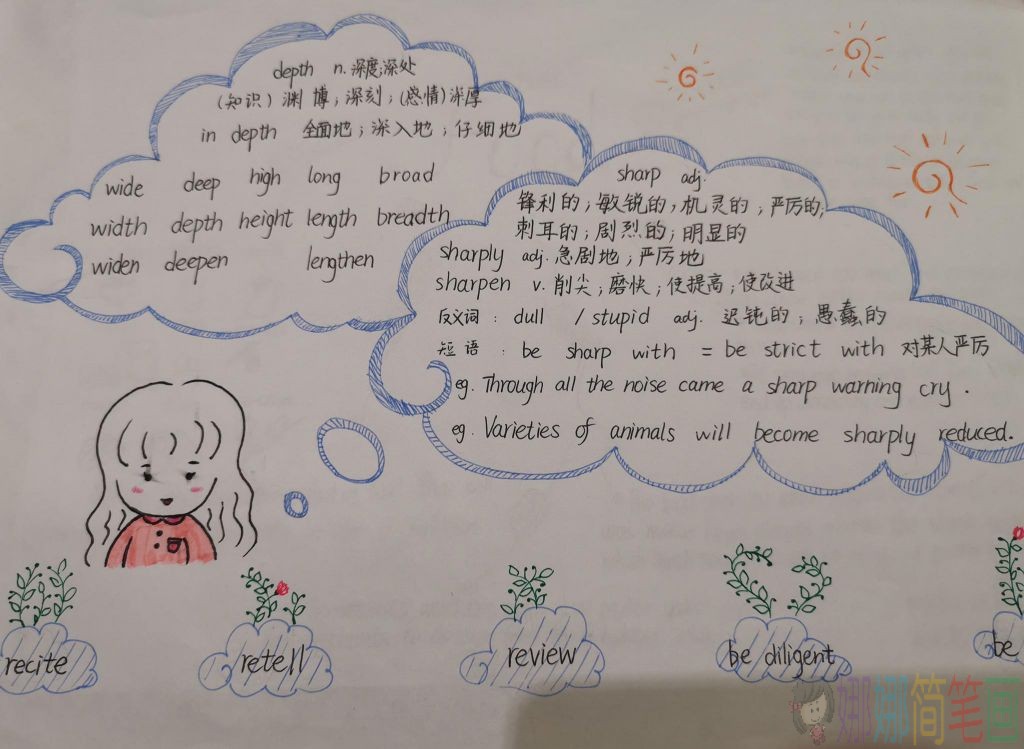 depth n. 深度;深处
(知识)渊博;深刻;(感情)深厚
in depth 全面地;深入地;仔细地
wide deep high long broad
width depth height length breadth
widen deepen lengthen
sharp adj.
锋利的;敏锐的,机灵的;严厉的;
刺耳的;剧烈的;明显的
sharply adj. 急剧地;严厉地
sharpen v. 削尖;磨快;使提高;使改进
反义词: dull / stupid adj. 迟钝的;愚蠢的
短语: be sharp with = be strict with 对某人严厉
eg. Through all the noise came a sharp warning cry.
eg. Varieties of animals will become sharply reduced.
recite
retell
review
be diligent
be
娜娜简笔画